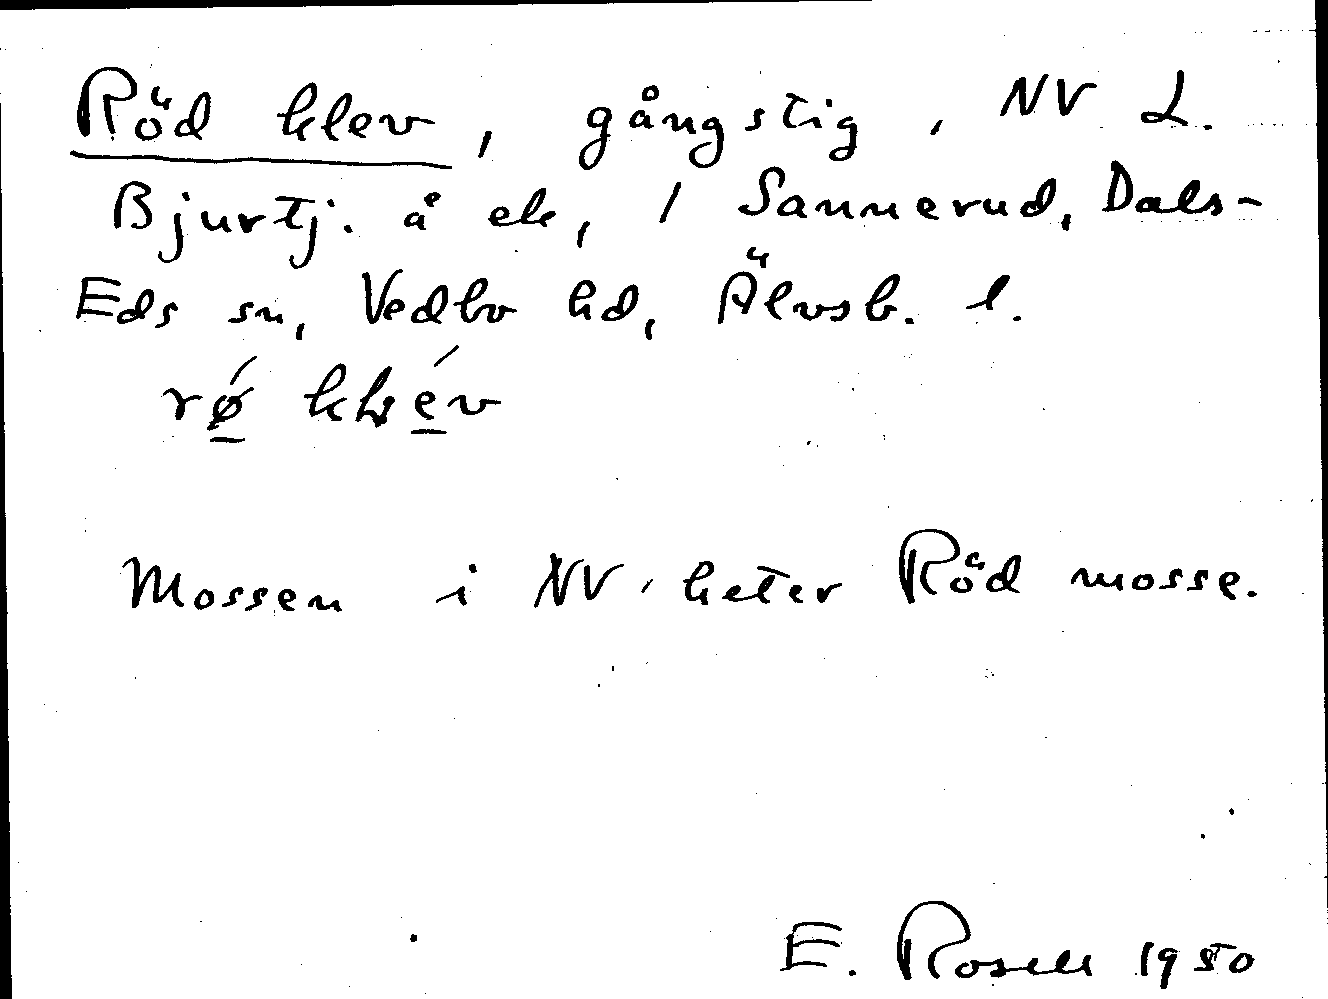 Röd klev, gångstig, NV L.
Bjurtj. å ek, 1 Sannerud, Dals-
Eds sn, Vedbo hd, Älvsb. l.
rǿ
Mossen i NV heter Röd mosse.
E. Rosell 1950